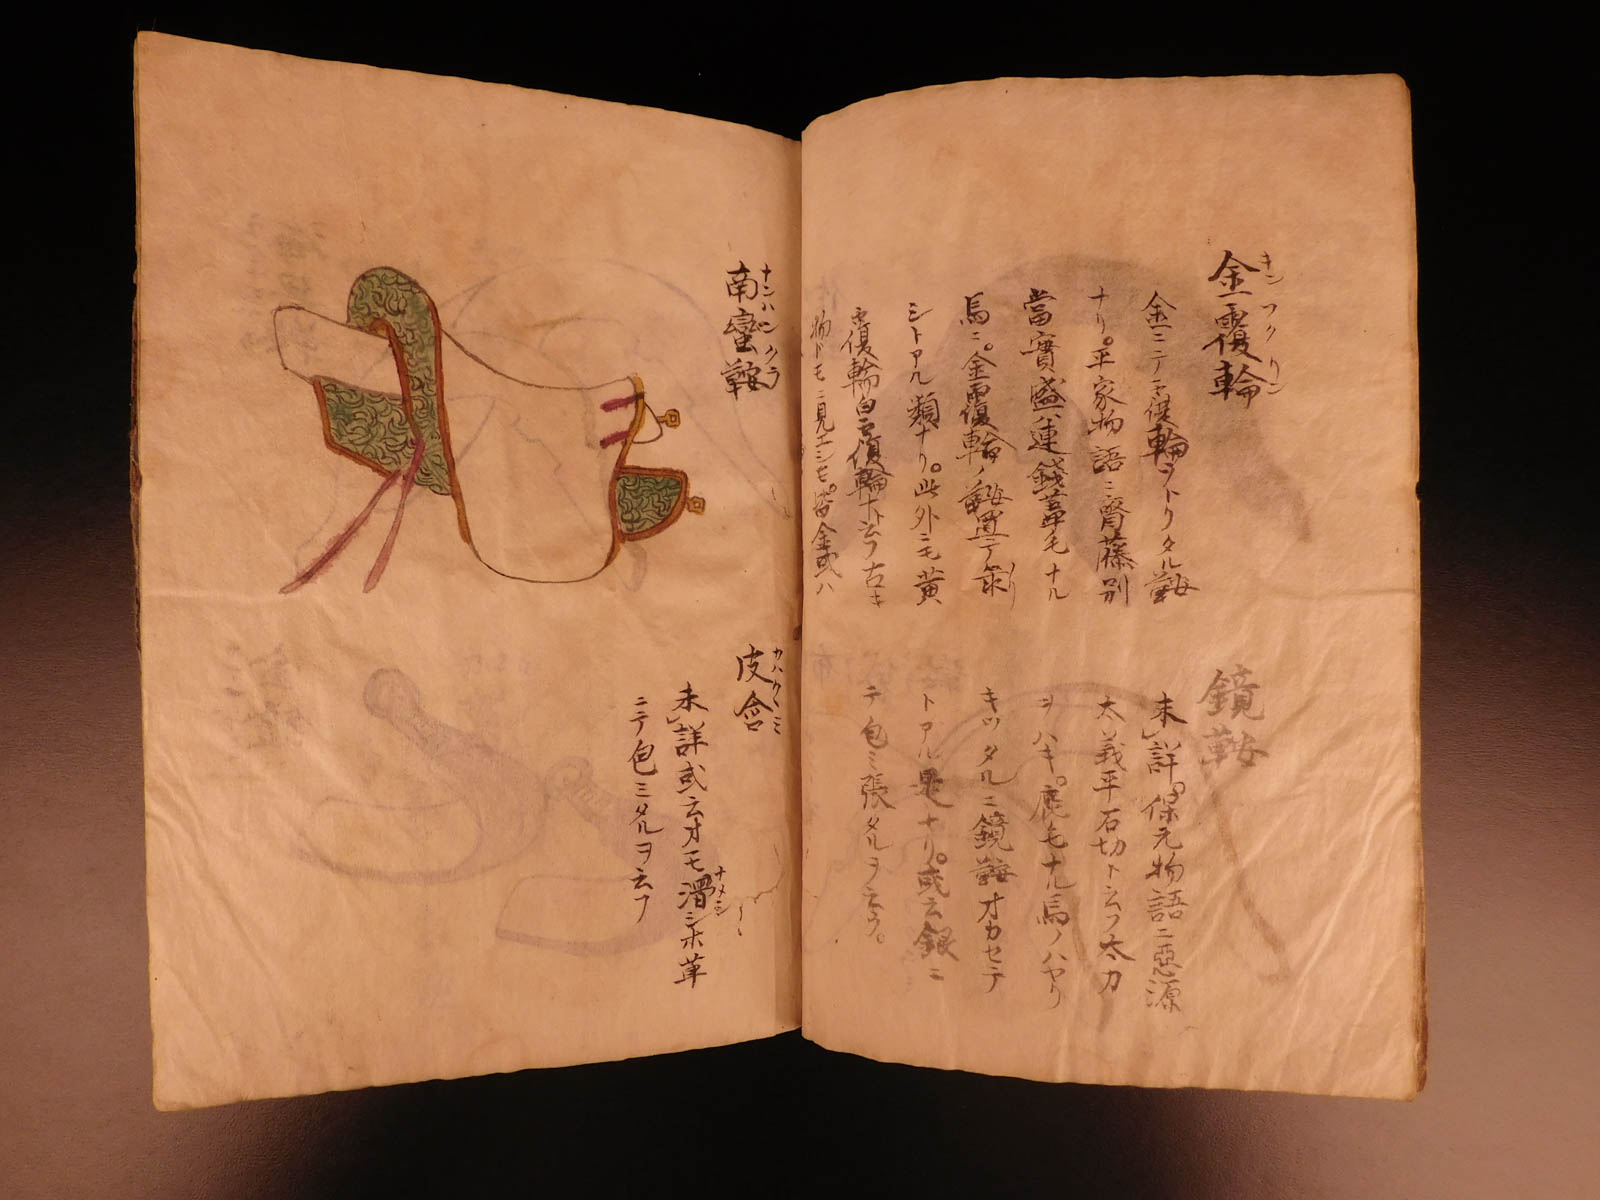 金覆輪
キンフクリン
金ニテ覆輪ヲトリタル鞍
ナリ。平家物語ニ齊藤別
當實盛ハ連錢葦毛ナル
馬ニ。金覆輪ノ鞍置テ
シトアル類ナリ。此外ニモ黄
覆輪白覆輪ナト云フ古キ
物ドモニ見エシモ。皆金或ハ
鏡鞍
未詳。保元物語ニ惡源
太義平石切ト云フ太刀
ヲハキ。鹿毛ナル馬ノハヤリ
キツタルニ鏡鞍オカセテ
トアル是ナリ。或云銀ニ
テ包ミ張タルヲ云フ。
南蠻鞍
ナンハンクラ
皮含
カハクヽミ
未詳或云オモ滑シホ革
ナメシ
ニテ包ミタルヲ云フ